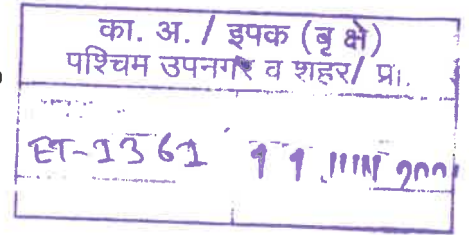 का. अ. / इपक (बृ क्षे)
पश्चिम उपनगर व शहर/ प्रा.
ET-1361 11